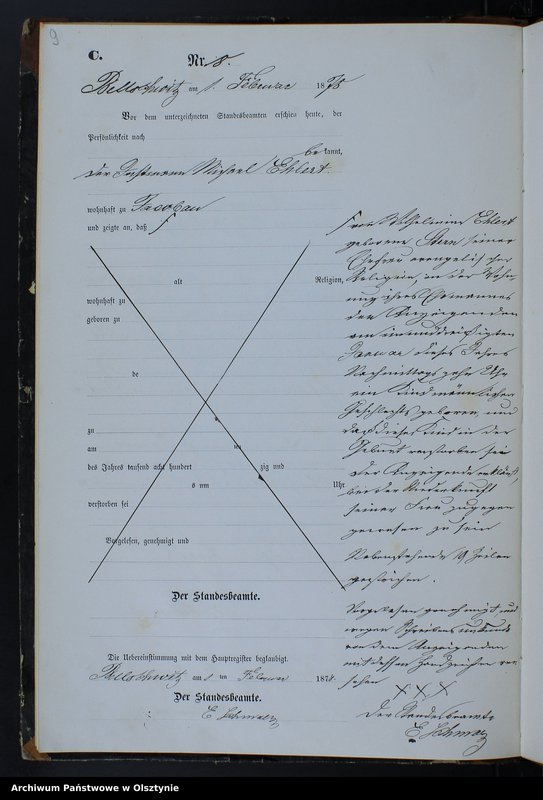 9
C.
Nr. 8.
Bellschwitz am 1. Februar 1878
Vor dem unterzeichneten Standesbeamten erschien heute, der
Persönlichkeit nach
bekannt,
der Michael Ehlert.
wohnhaft zu Jacobau
und zeigte an, daß
alt Religion,
wohnhaft zu
geboren zu
de
zu
am ten
des Jahres tausend acht hundert zig und
s um Uhr
verstorben sei
Vorgelesen, genehmigt und
Der Standesbeamte.
Die Uebereinstimmung mit dem Hauptregister beglaubigt.
Bellschwitz am 1 ten Februar 1878.
Der Standesbeamte.
E Schmalz
von Wilhelmine Ehlert
geborene seiner
Ehefrau evangelischer
Religion, in der Woh-
nung ihres Ehemannes
des Anzeigenden
am einunddreißigsten
Januar dieses Jahres
Nachmittags zehn Uhr
ein Kind männlichen
Geschlechts geboren und
daß dieses Kind in der
Geburt verstorben sei
Der Anzeigende erklärt
bei der Niederkunft
seiner Frau zugegen
gewesen zu sein
Nebenstehende 19 Zeilen
gestrichen.
Vorgelesen genehmigt und
wegen Schreibens
von dem Anzeigenden
mit dessen Handzeichen ver-
sehen
X X X
Der Standesbeamte
E Schmalz
Archiwum Państwowe w Olsztynie